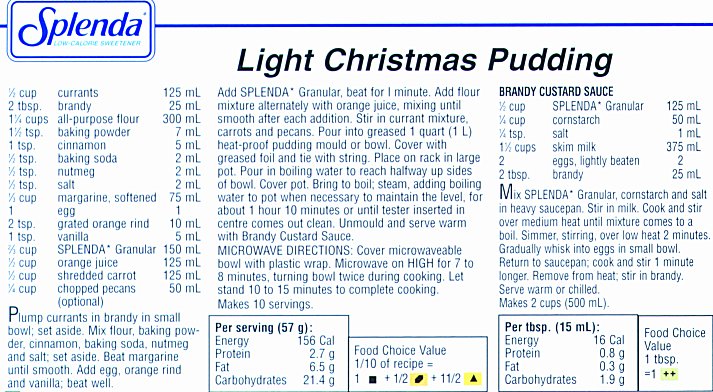 Splenda®
LOW-CALORIE SWEETENER
Light Christmas Pudding
½ cup currants 125 mL
2 tbsp. brandy 25 mL
1¼ cups all-purpose flour 300 mL
1½ tsp. baking powder 7 mL
1 tsp. cinnamon 5 mL
½ tsp. baking soda 2 mL
½ tsp. nutmeg 2 mL
½ tsp. salt 2 mL
margarine, softened 75 mL
1 egg 1
2 tsp. grated orange rind 10 mL
1 tsp. vanilla 5 mL
SPLENDA* Granular 150 mL
½ cup orange juice 125 mL
½ cup shredded carrot 125 mL
¼ cup chopped pecans 50 mL
(optional)
Plump currants in brandy in small
bowl; set aside. Mix flour, baking pow-
der, cinnamon, baking soda, nutmeg
and salt; set aside. Beat margarine
until smooth. Add egg, orange rind
and vanilla; beat well.
Add SPLENDA* Granular, beat for 1 minute. Add flour
mixture alternately with orange juice, mixing until
smooth after each addition. Stir in currant mixture,
carrots and pecans. Pour into greased 1 quart (1 L)
heat-proof pudding mould or bowl. Cover with
greased foil and tie with string. Place on rack in large
pot. Pour in boiling water to reach halfway up sides
of bowl. Cover pot. Bring to boil; steam, adding boiling
water to pot when necessary to maintain the level, for
about 1 hour 10 minutes or until tester inserted in
centre comes out clean. Unmould and serve warm
with Brandy Custard Sauce.
MICROWAVE DIRECTIONS: Cover microwaveable
bowl with plastic wrap. Microwave on HIGH for 7 to
8 minutes, turning bowl twice during cooking. Let
stand 10 to 15 minutes to complete cooking.
Makes 10 servings.
Per serving (57 g):
Energy 156 Cal
Protein 2.7 g
Fat 6.5 g
Carbohydrates 21.4 g
Food Choice
Value
1/10 of recipe =
1 ■ + 1/2 + 11/2 ▲
BRANDY CUSTARD SAUCE
½ cup SPLENDA* Granular 125 mL
¼ cup cornstarch 50 mL
¼ tsp. salt 1 mL
1½ cups skim milk 375 mL
2 eggs, lightly beaten 2
2 tbsp. brandy 25 mL
Mix SPLENDA* Granular, cornstarch and salt
in heavy saucepan. Stir in milk. Cook and stir
over medium heat until mixture comes to a
boil. Simmer, stirring, over low heat 2 minutes.
Gradually whisk into eggs in small bowl.
Return to saucepan; cook and stir 1 minute
longer. Remove from heat; stir in brandy.
Serve warm or chilled.
Makes 2 cups (500 mL).
Per tbsp. (15 mL):
Energy 16 Cal
Protein 0.8 g
Fat 0.3 g
Carbohydrates 1.9 g
Food Choice
Value
1 tbsp.
=1 ++